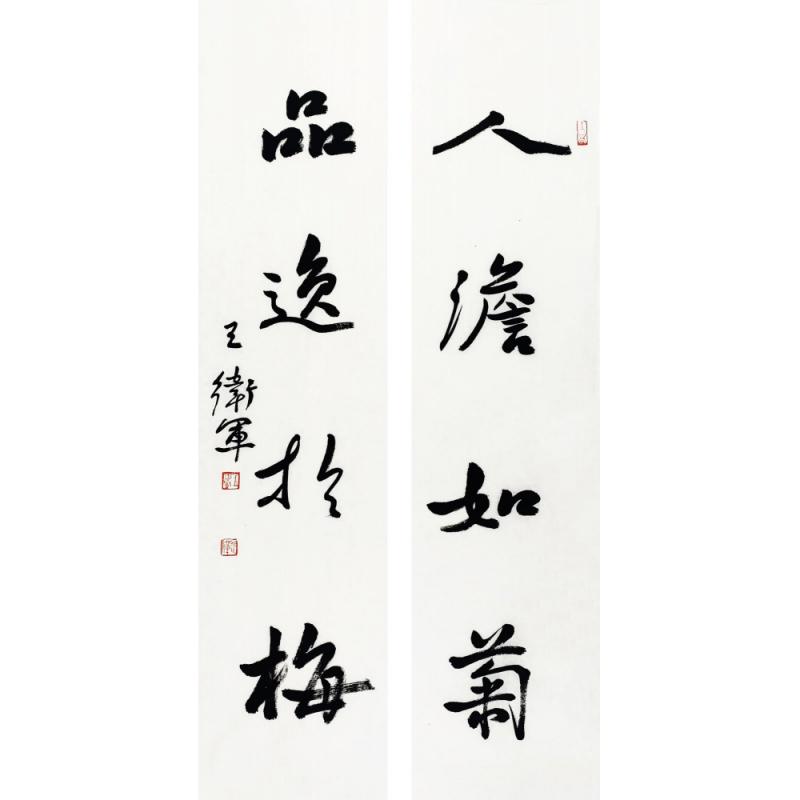 人澹如菊
品逸於梅
王衛軍